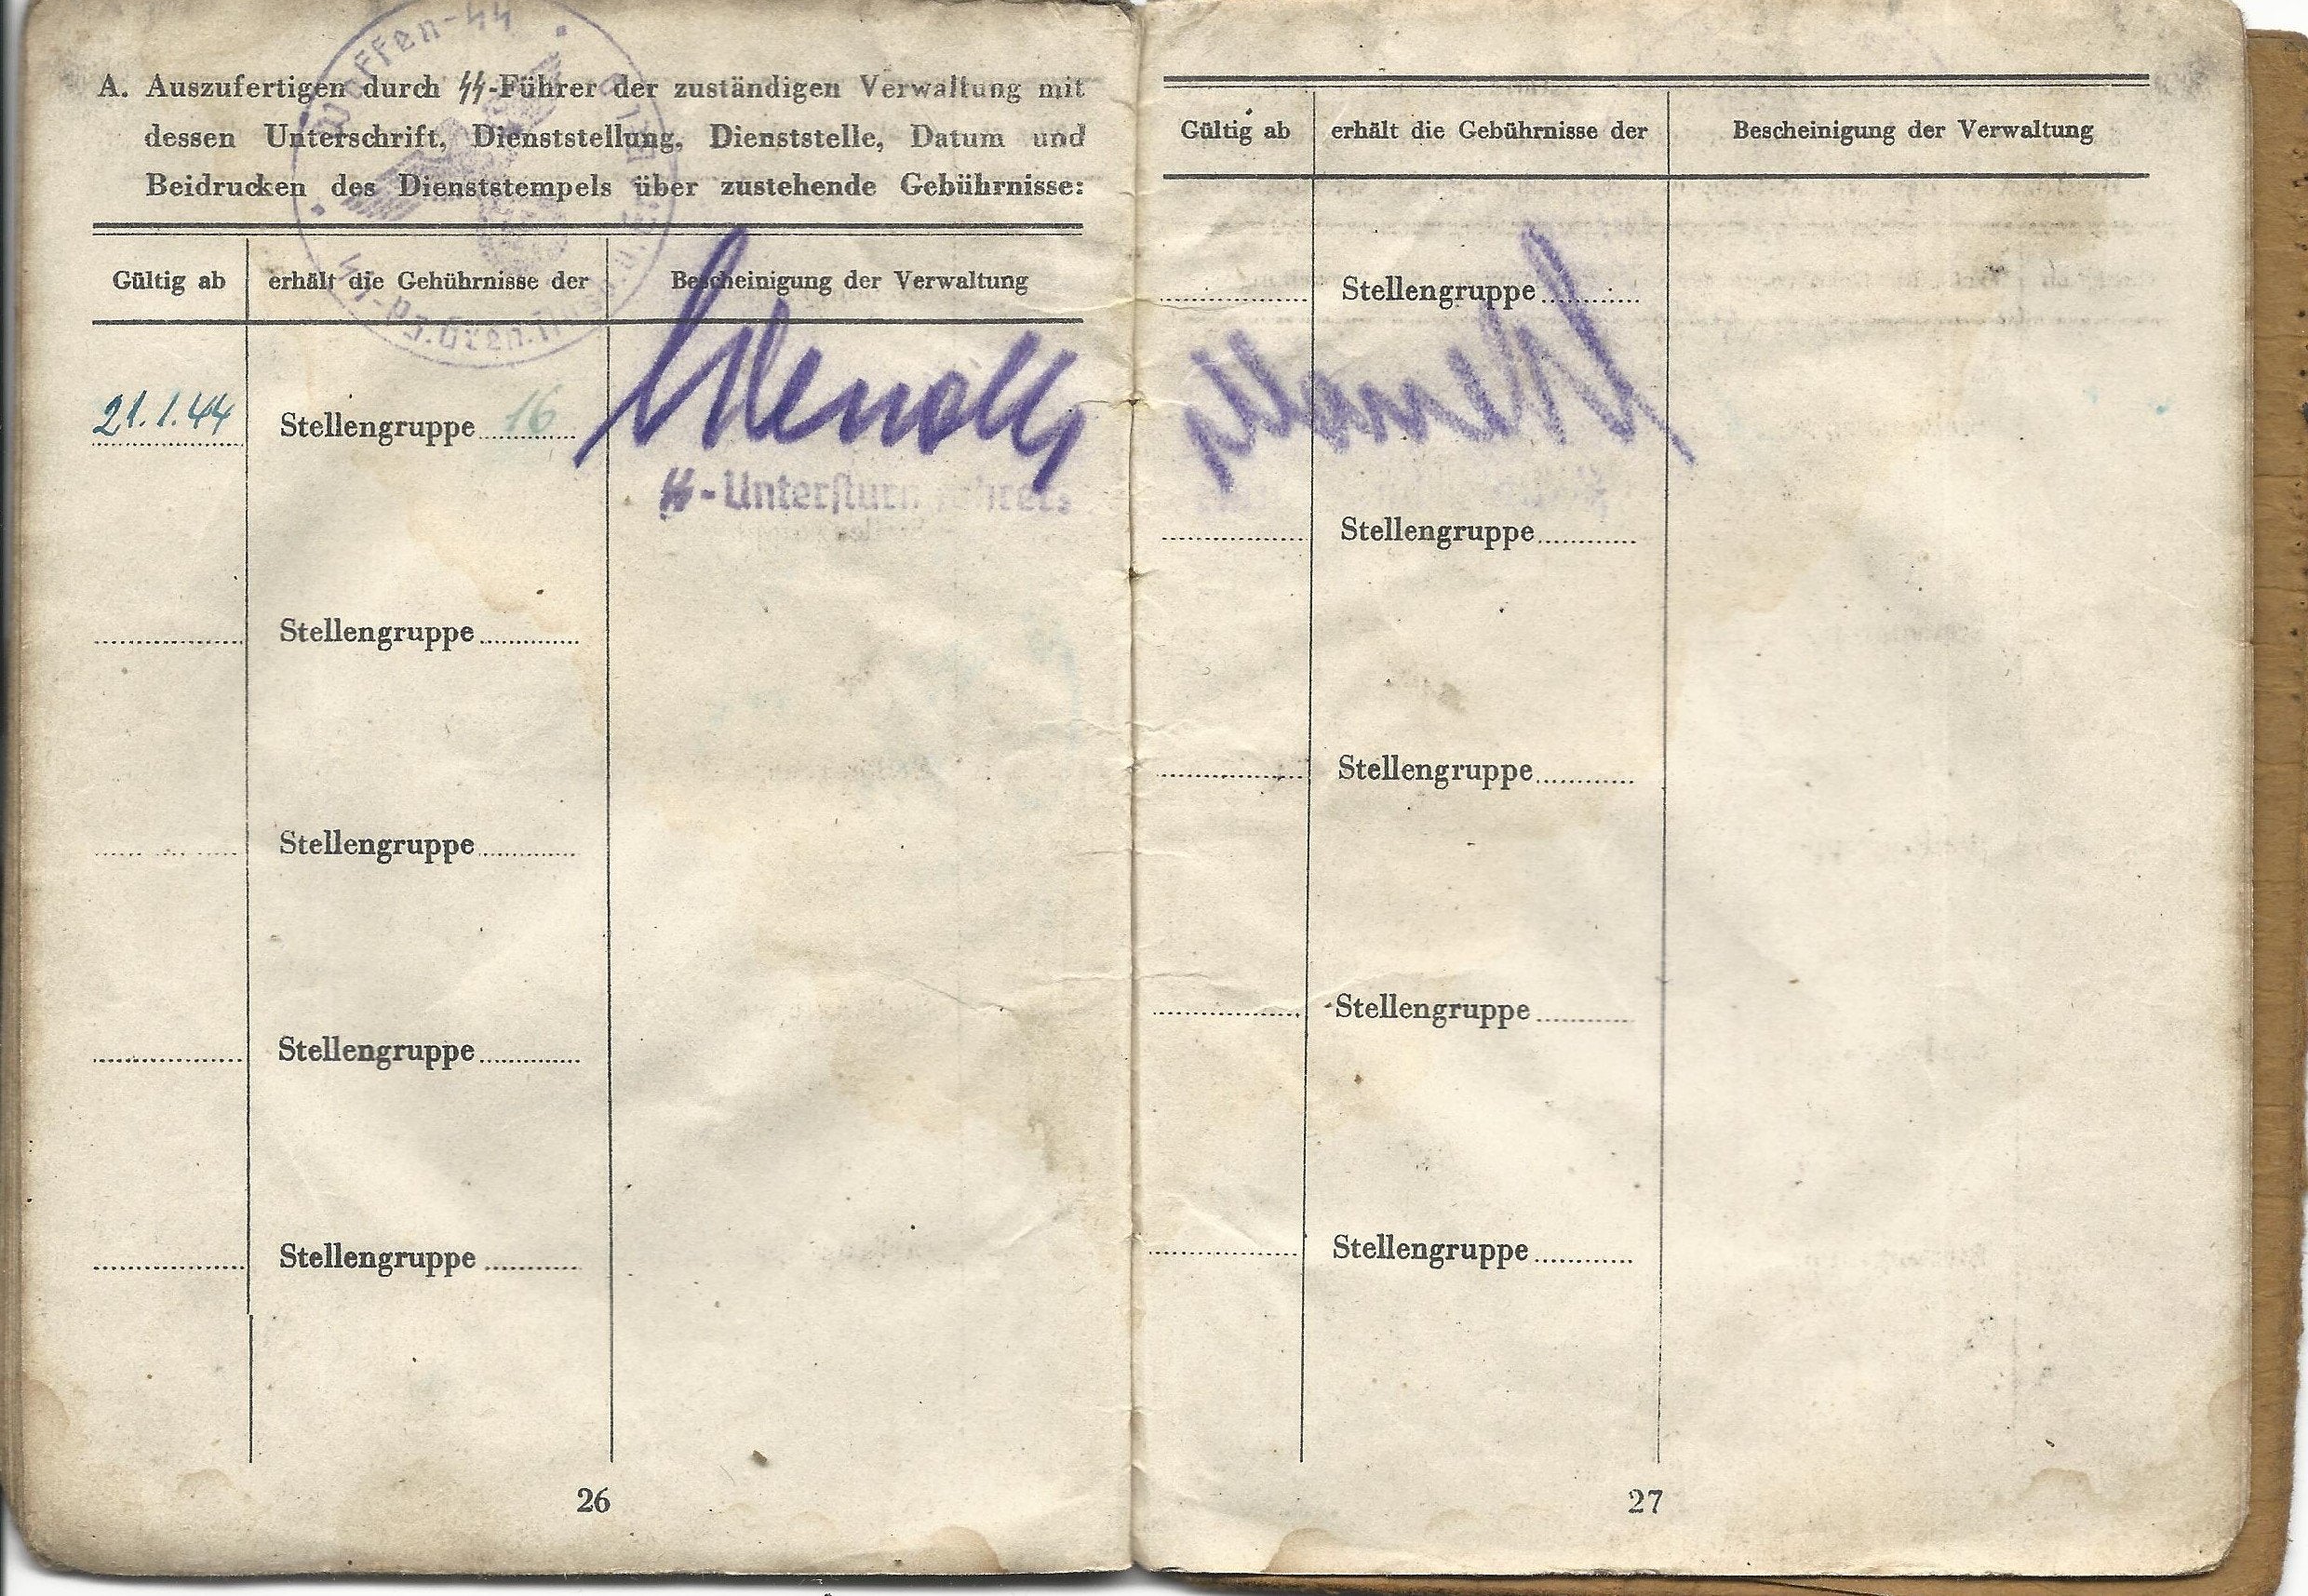 Waffen-SS
A. Auszufertigen durch SS-Führer der zuständigen Verwaltung mit
dessen Unterschrift, Dienststellung, Dienststelle, Datum und
Beidrucken des Dienststempels über zustehende Gebührnisse:
Gültig ab erhält die Gebührnisse der Bescheinigung der Verwaltung
21.1.44 Stellengruppe 16
SS-Untersturmführer
Stellengruppe
Stellengruppe
Stellengruppe
Stellengruppe
26
Gültig ab erhält die Gebührnisse der Bescheinigung der Verwaltung
Stellengruppe
Stellengruppe
Stellengruppe
Stellengruppe
Stellengruppe
27